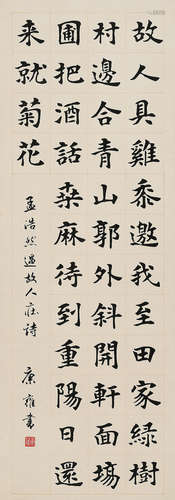 故人具雞黍邀我至田家綠樹
村邊合青山郭外斜開軒面場
圃把酒話桒麻待到重陽日還
来就菊花
孟浩然過故人莊詩
康雍書